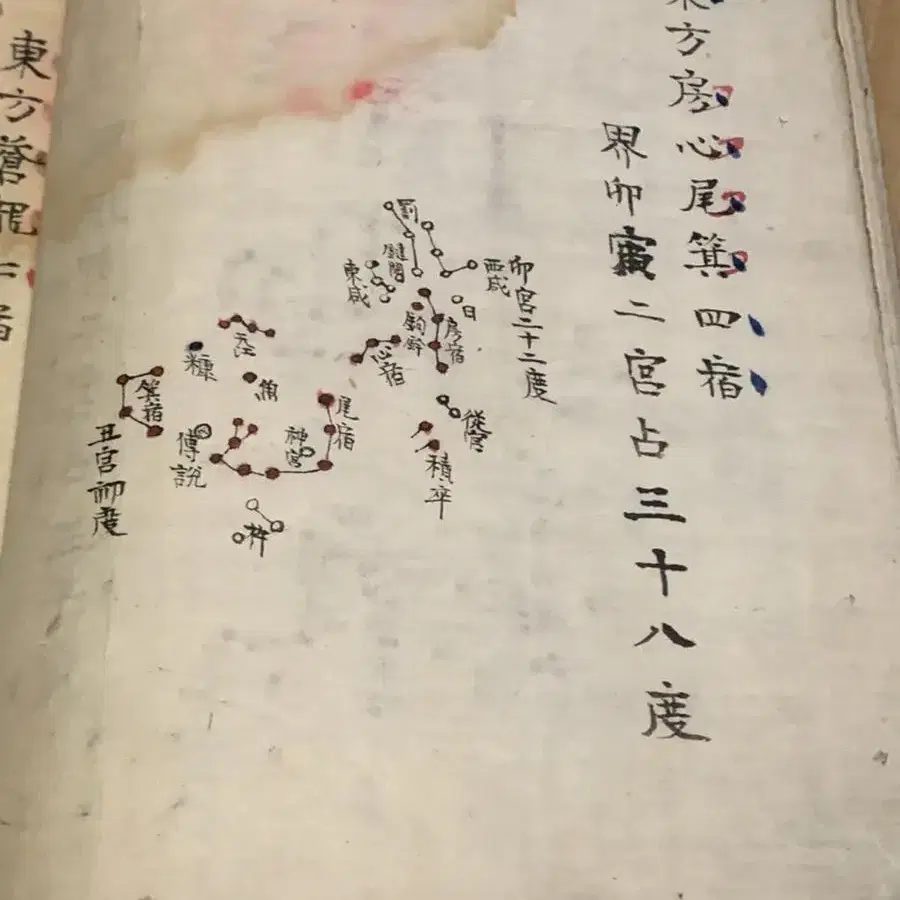 東方房心尾箕四宿
界卯寅二宮占三十八度
卯宮二十二度
西咸
罰
鍵閉
東咸
日
房宿
鉤鈐
心宿
從官
積卒
尾宿
神宮
天江
魚
糠
傅說
箕宿
杵
丑宮初度
東方蒼
宿